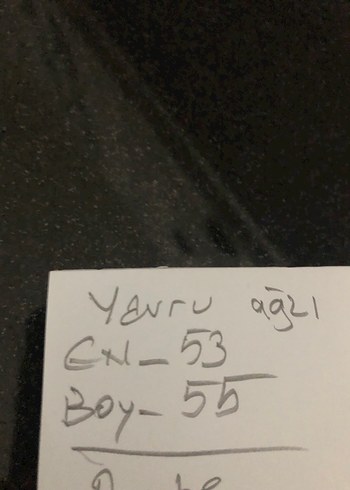 Yavru ağzı
EN- 53
Boy- 55